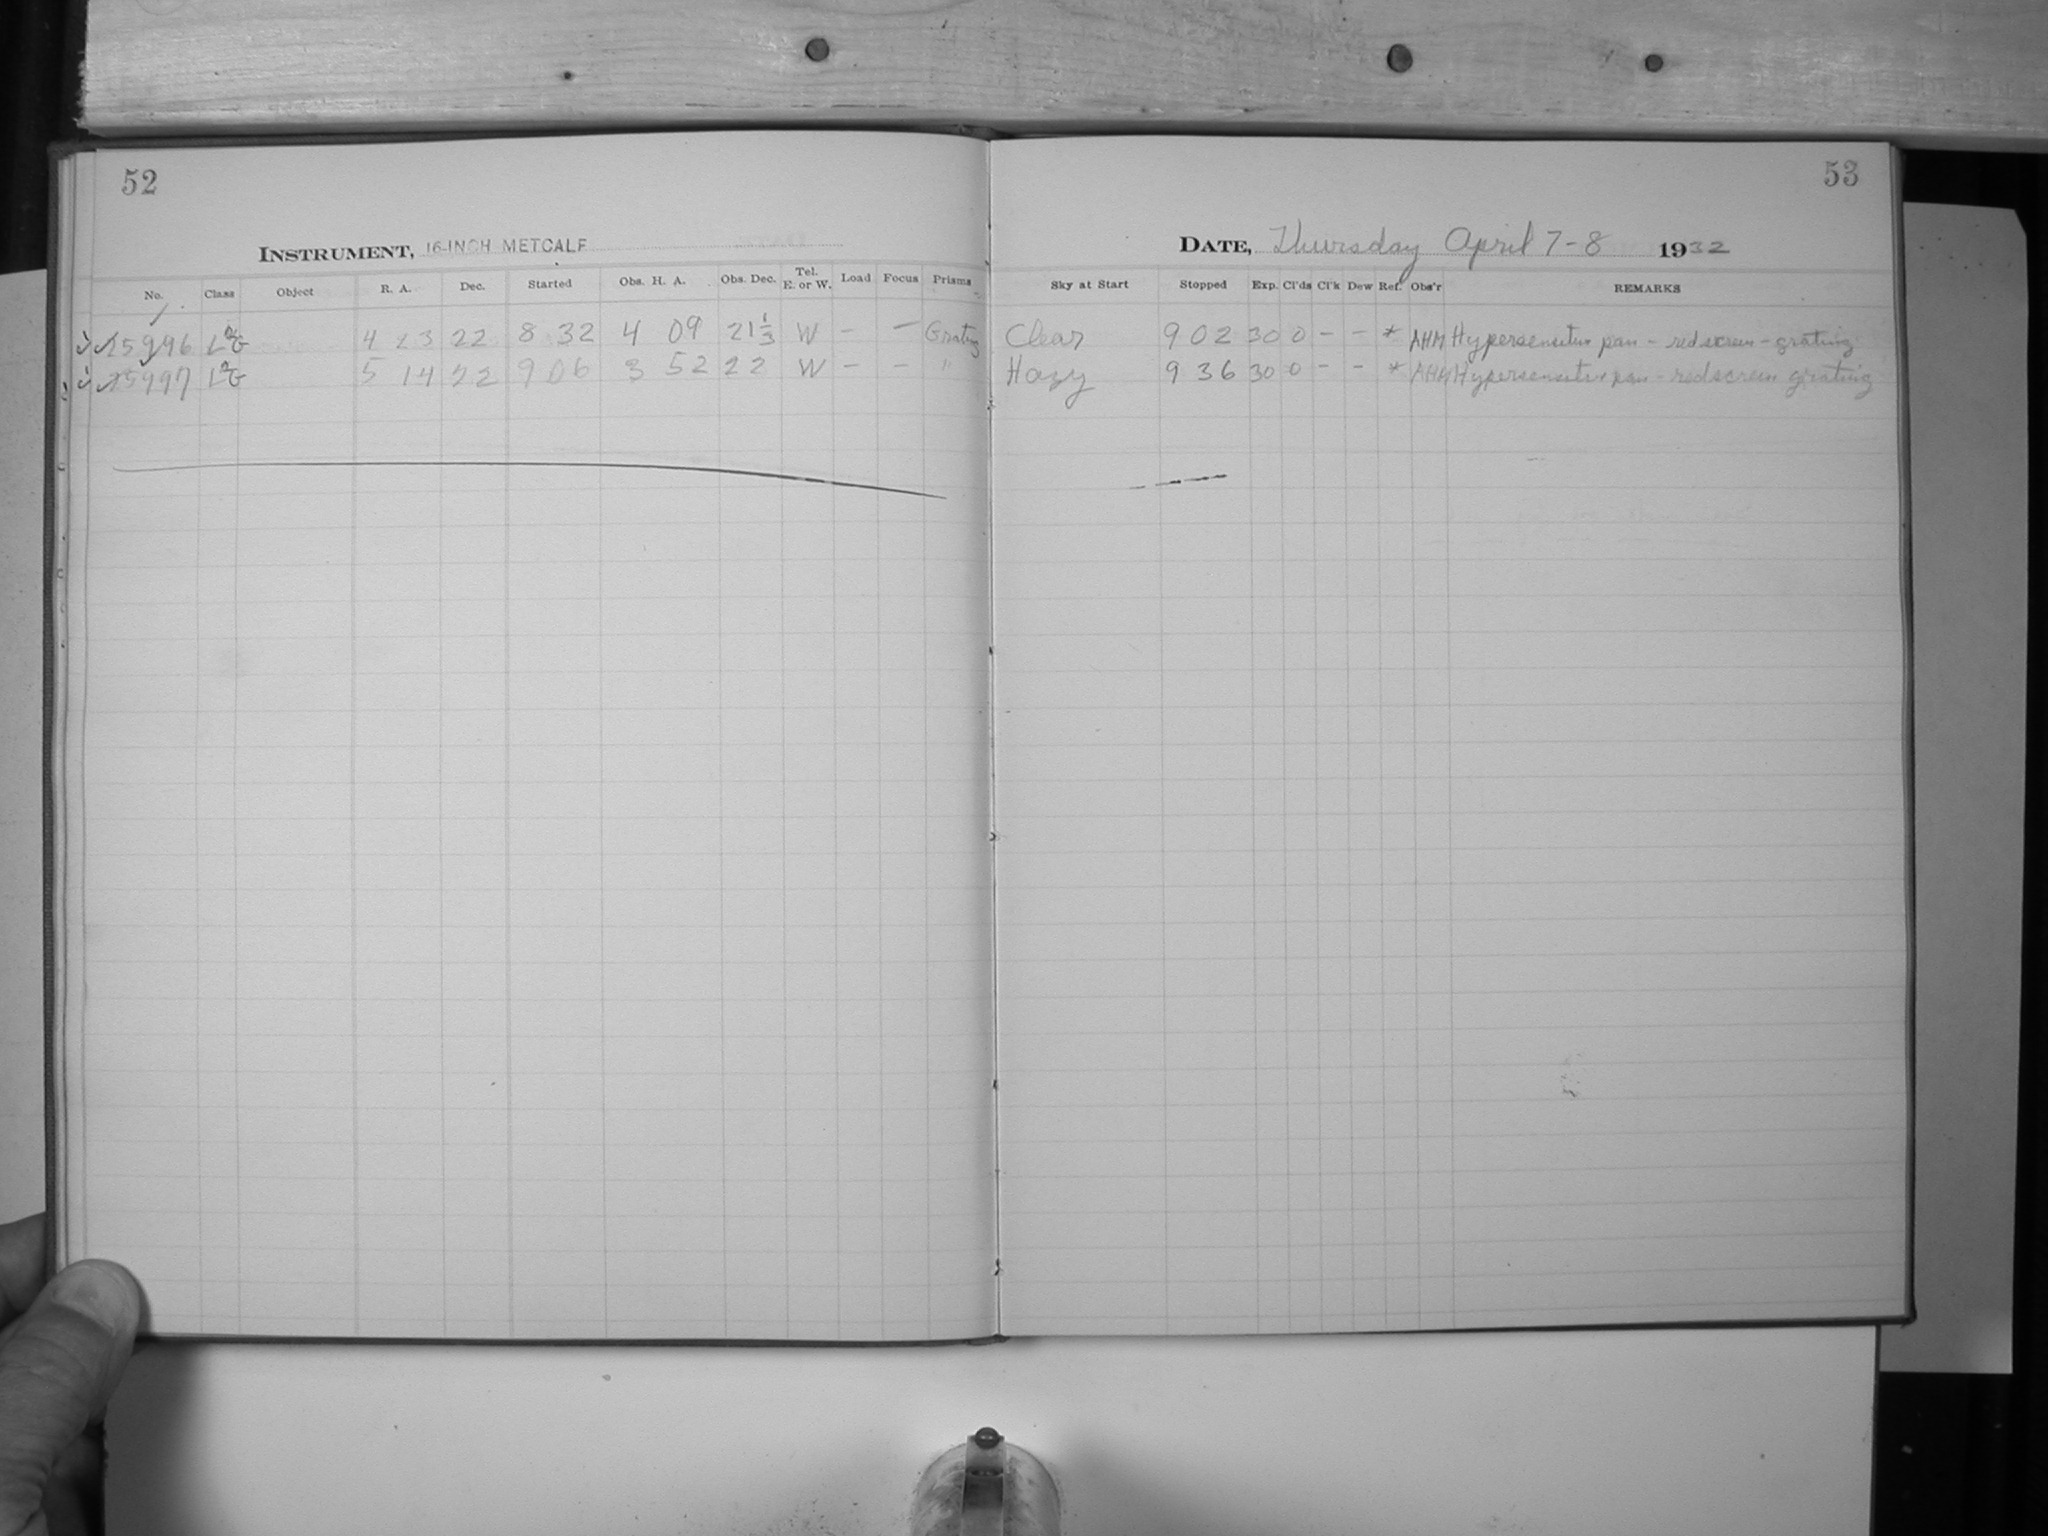 52
INSTRUMENT, 16-INCH METCALF
No. Class Object R. A. Dec. Started Obs. H. A. Obs. Dec. Tel. E. or W. Load Focus Prisms
15996 4 23 22 8 32 4 09 21 1/3 W - - Grating
15997 5 14 22 9 06 3 52 22 W - - "
53
DATE, Thursday April 7-8 1932
Sky at Start Stopped Exp. Cl'ds Cl'k Dew Ref. Obs'r REMARKS
Clear 9 02 30 0 - - * AHM Hypersensitive pan - red screen - grating
Hazy 9 36 30 0 - - * AHM Hypersensitive pan - red screen grating